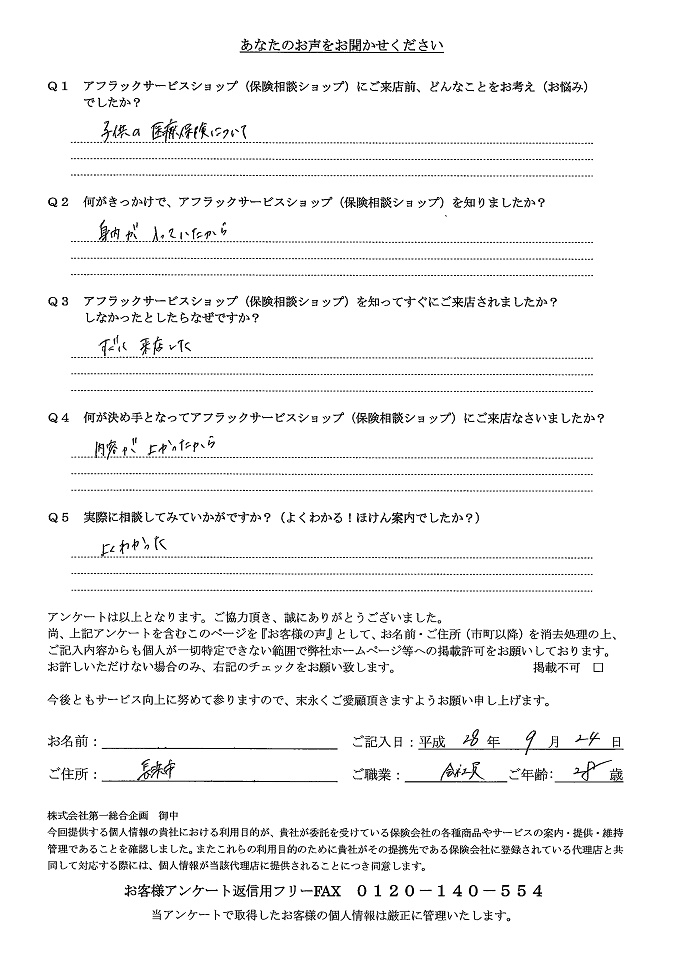 あなたのお声をお聞かせください
Q1 アフラックサービスショップ（保険相談ショップ）にご来店前、どんなことをお考え（お悩み）
でしたか？
子供の医療保険について
Q2 何がきっかけで、アフラックサービスショップ（保険相談ショップ）を知りましたか？
身内が入っていたから
Q3 アフラックサービスショップ（保険相談ショップ）を知ってすぐにご来店されましたか？
しなかったとしたらなぜですか？
すぐに来店した
Q4 何が決め手となってアフラックサービスショップ（保険相談ショップ）にご来店なさいましたか？
内容がよかったから
Q5 実際に相談してみていかがですか？（よくわかる！ほけん案内でしたか？）
よくわかった
アンケートは以上となります。ご協力頂き、誠にありがとうございました。
尚、上記アンケートを含むこのページを『お客様の声』として、お名前・ご住所（市町以降）を消去処理の上、
ご記入内容からも個人が一切特定できない範囲で弊社ホームページ等への掲載許可をお願いしております。
お許しいただけない場合のみ、右記のチェックをお願い致します。 掲載不可 □
今後ともサービス向上に努めて参りますので、末永くご愛顧頂きますようお願い申し上げます。
お名前： ご記入日：平成 28 年 9 月 24 日
ご住所： ご職業： 会社員 ご年齢： 28 歳
株式会社第一総合企画 御中
今回提供する個人情報の貴社における利用目的が、貴社が委託を受けている保険会社の各種商品やサービスの案内・提供・維持
管理であることを確認しました。またこれらの利用目的のために貴社がその提携先である保険会社に登録されている代理店と共
同して対応する際には、個人情報が当該代理店に提供されることにつき同意します。
お客様アンケート返信用フリーFAX 0120－140－554
当アンケートで取得したお客様の個人情報は厳正に管理いたします。